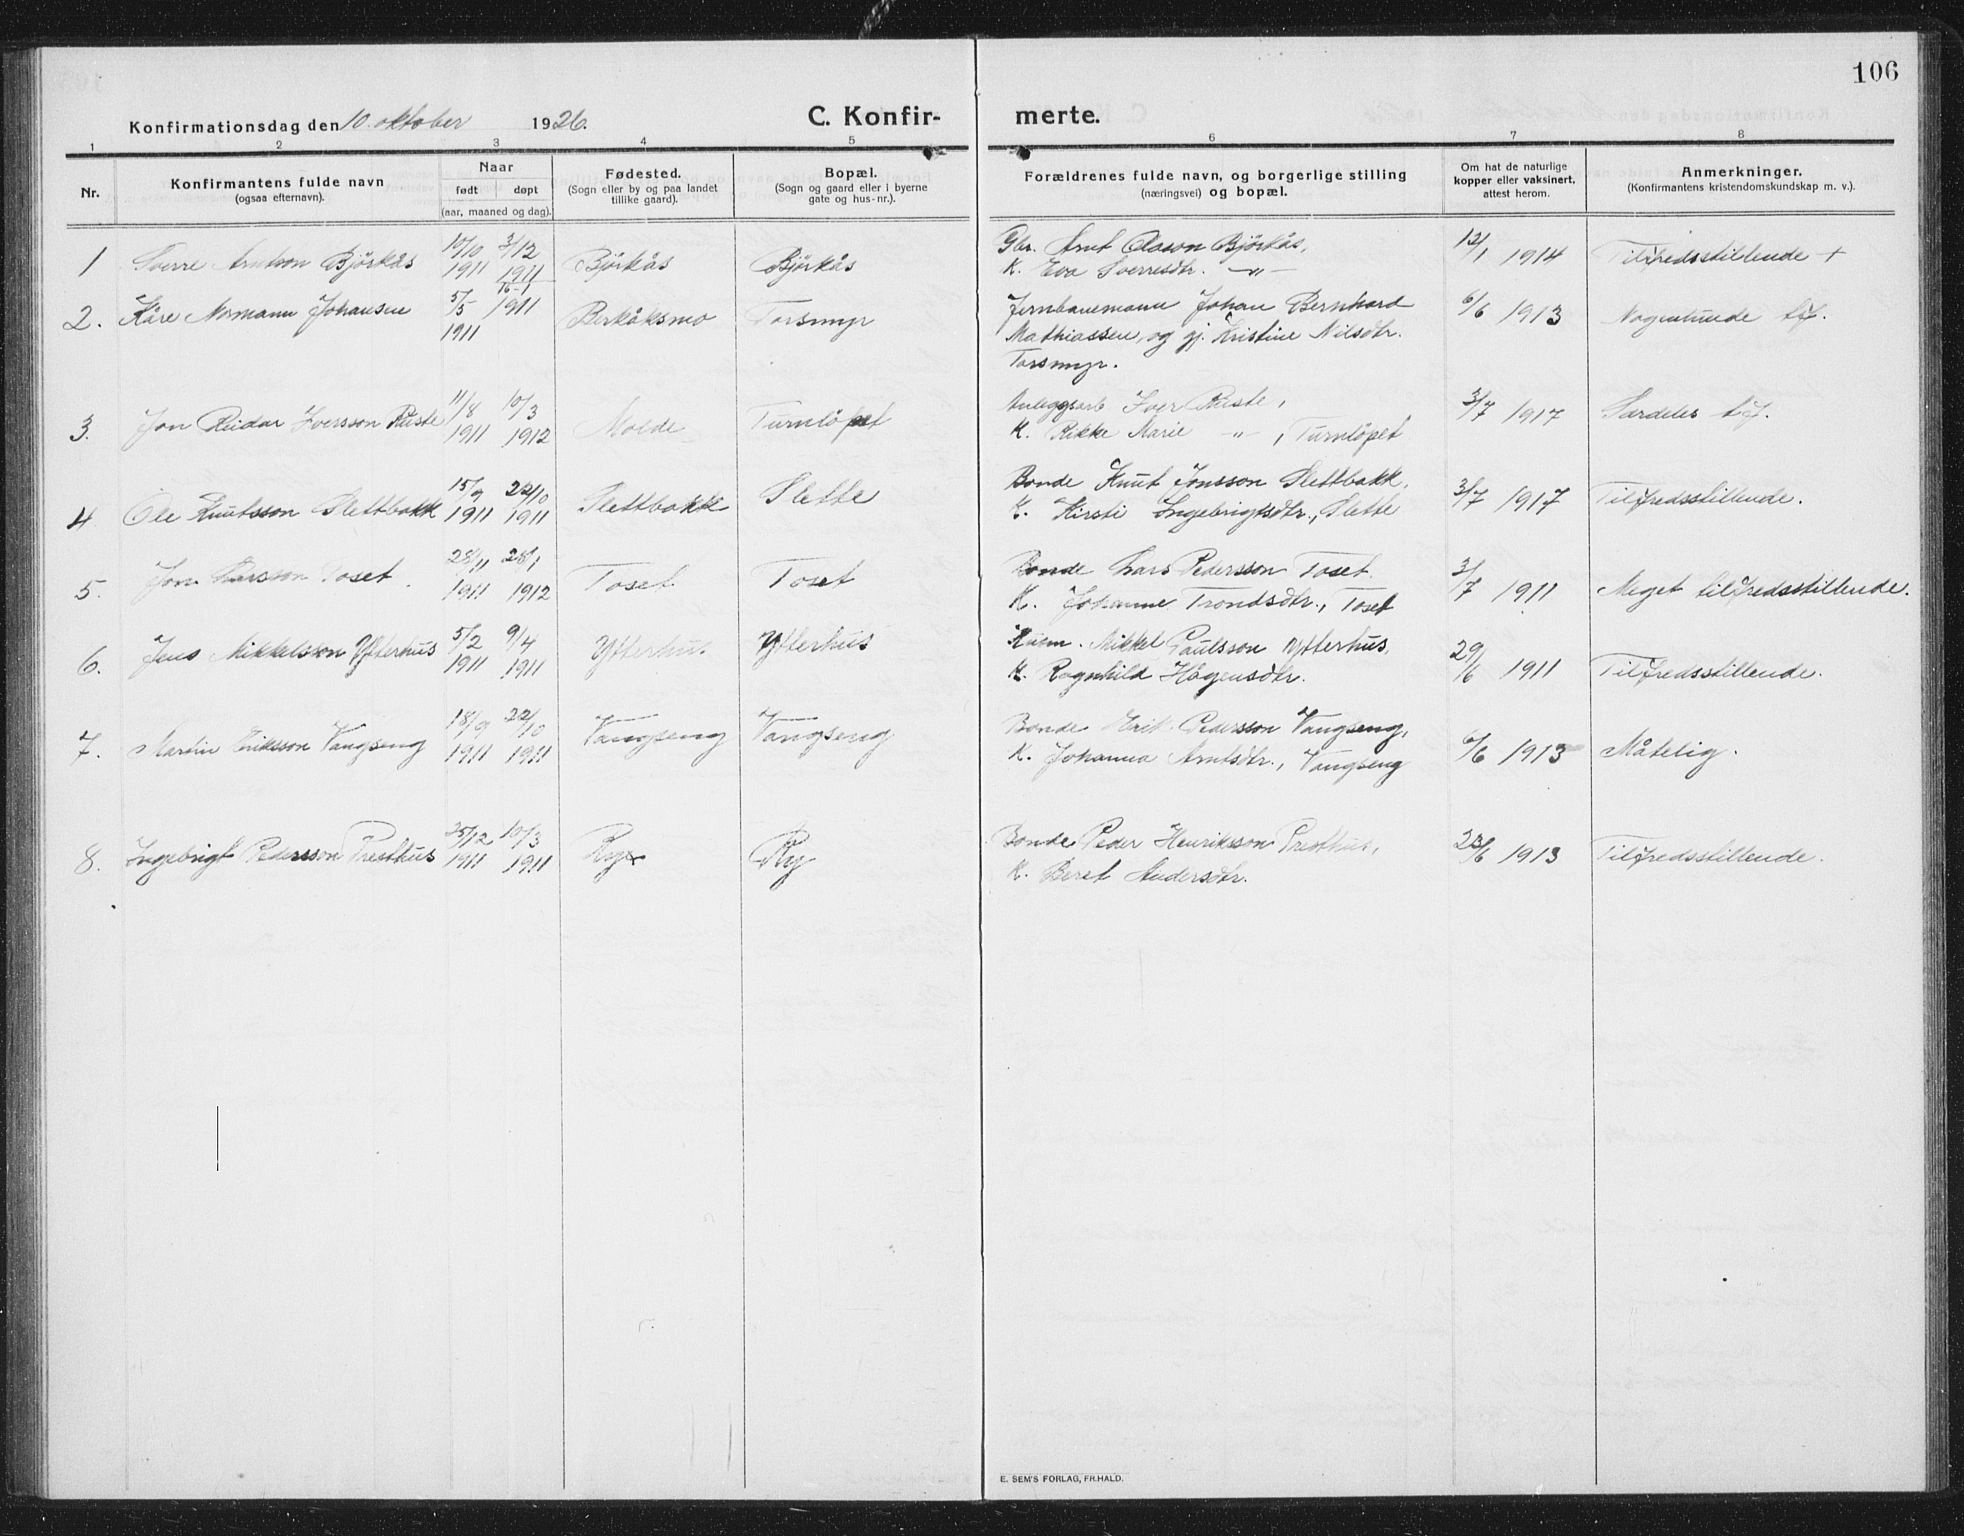 106
Konfirmationsdag den 10. oktober 1926. C. Konfir- merte.
1 2 3 4 5 6 7 8
Nr. Konfirmantens fulde navn (ogsaa efternavn). Naar født døpt (aar, maaned og dag). Fødested. (Sogn eller by og paa landet tillike gaard). Bopæl. (Sogn og gaard eller i byerne gate og hus-nr.). Forældrenes fulde navn, og borgerlige stilling (næringsvei) og bopæl. Om hat de naturlige kopper eller vaksinert, attest herom. Anmerkninger. (Konfirmantens kristendomskundskap m. v.).
10/10 3/12 Gbr. Arnt Olason Björkås, 12/1 1914
1 Sverre Arntson Björkås 1911 1911 Björkås Björkås K. Eva Sverresdtr. -"- Tilfredsstillende +
5/5 16-1 Jernbanemann Johan Bernhard 6/6 1913
2. Kåre Normann Johansen 1911 1911 Berkåksmo Torsmyr Mathiassen, og gj. Kristine Nilsdtr. Nogenlunde tf.
Torsmyr.
11/8 10/3 Anleggsarb. Iver Ruste, 3/7 1917
3. Jon Reidar Iversson Ruste 1911 1912 Molde Turnlöpet K. Rikke Marie -"-, Turnlöpet Særdeles t.f.
15/9 22/10 Bonde Knut Jonsson Slettbakk, 3/7 1917
4 Ole Knutsson Slettbakk 1911 1911 Slettbakk Slette K. Kirsti Ingebrigtsdtr., Slette Tilfredsstillende.
28/11 28/1 Bonde Lars Pedersson Toset. 3/7 1911
5. Jon Larsson Toset. 1911 1912 Toset Toset K. Johanne Trondsdtr., Toset Meget tilfredsstillende.
5/2 9/4 Husm. Mikkel Paulsson Ytterhus, 29/6 1911
6. Jens Mikkelsson Ytterhus 1911 1911 Ytterhus Ytterhus K. Ragnhild Hågensdtr. Tilfredsstillende.
18/9 22/10 Bonde Erik Pedersson Vangseng, 6/6 1913
7. Martin Eriksson Vangseng 1911 1911 Vangseng Vangseng K. Johanna Arntsdtr., Vangseng Måtelig.
25/12 10/3 Bonde Peder Henriksson Presthus, 23/6 1913
8. Ingebrigt Pedersson Presthus 1911 1911 Ry Ry K. Beret Andersdtr. Tilfredsstillende.
E. SEM'S FORLAG, FR.HALD.